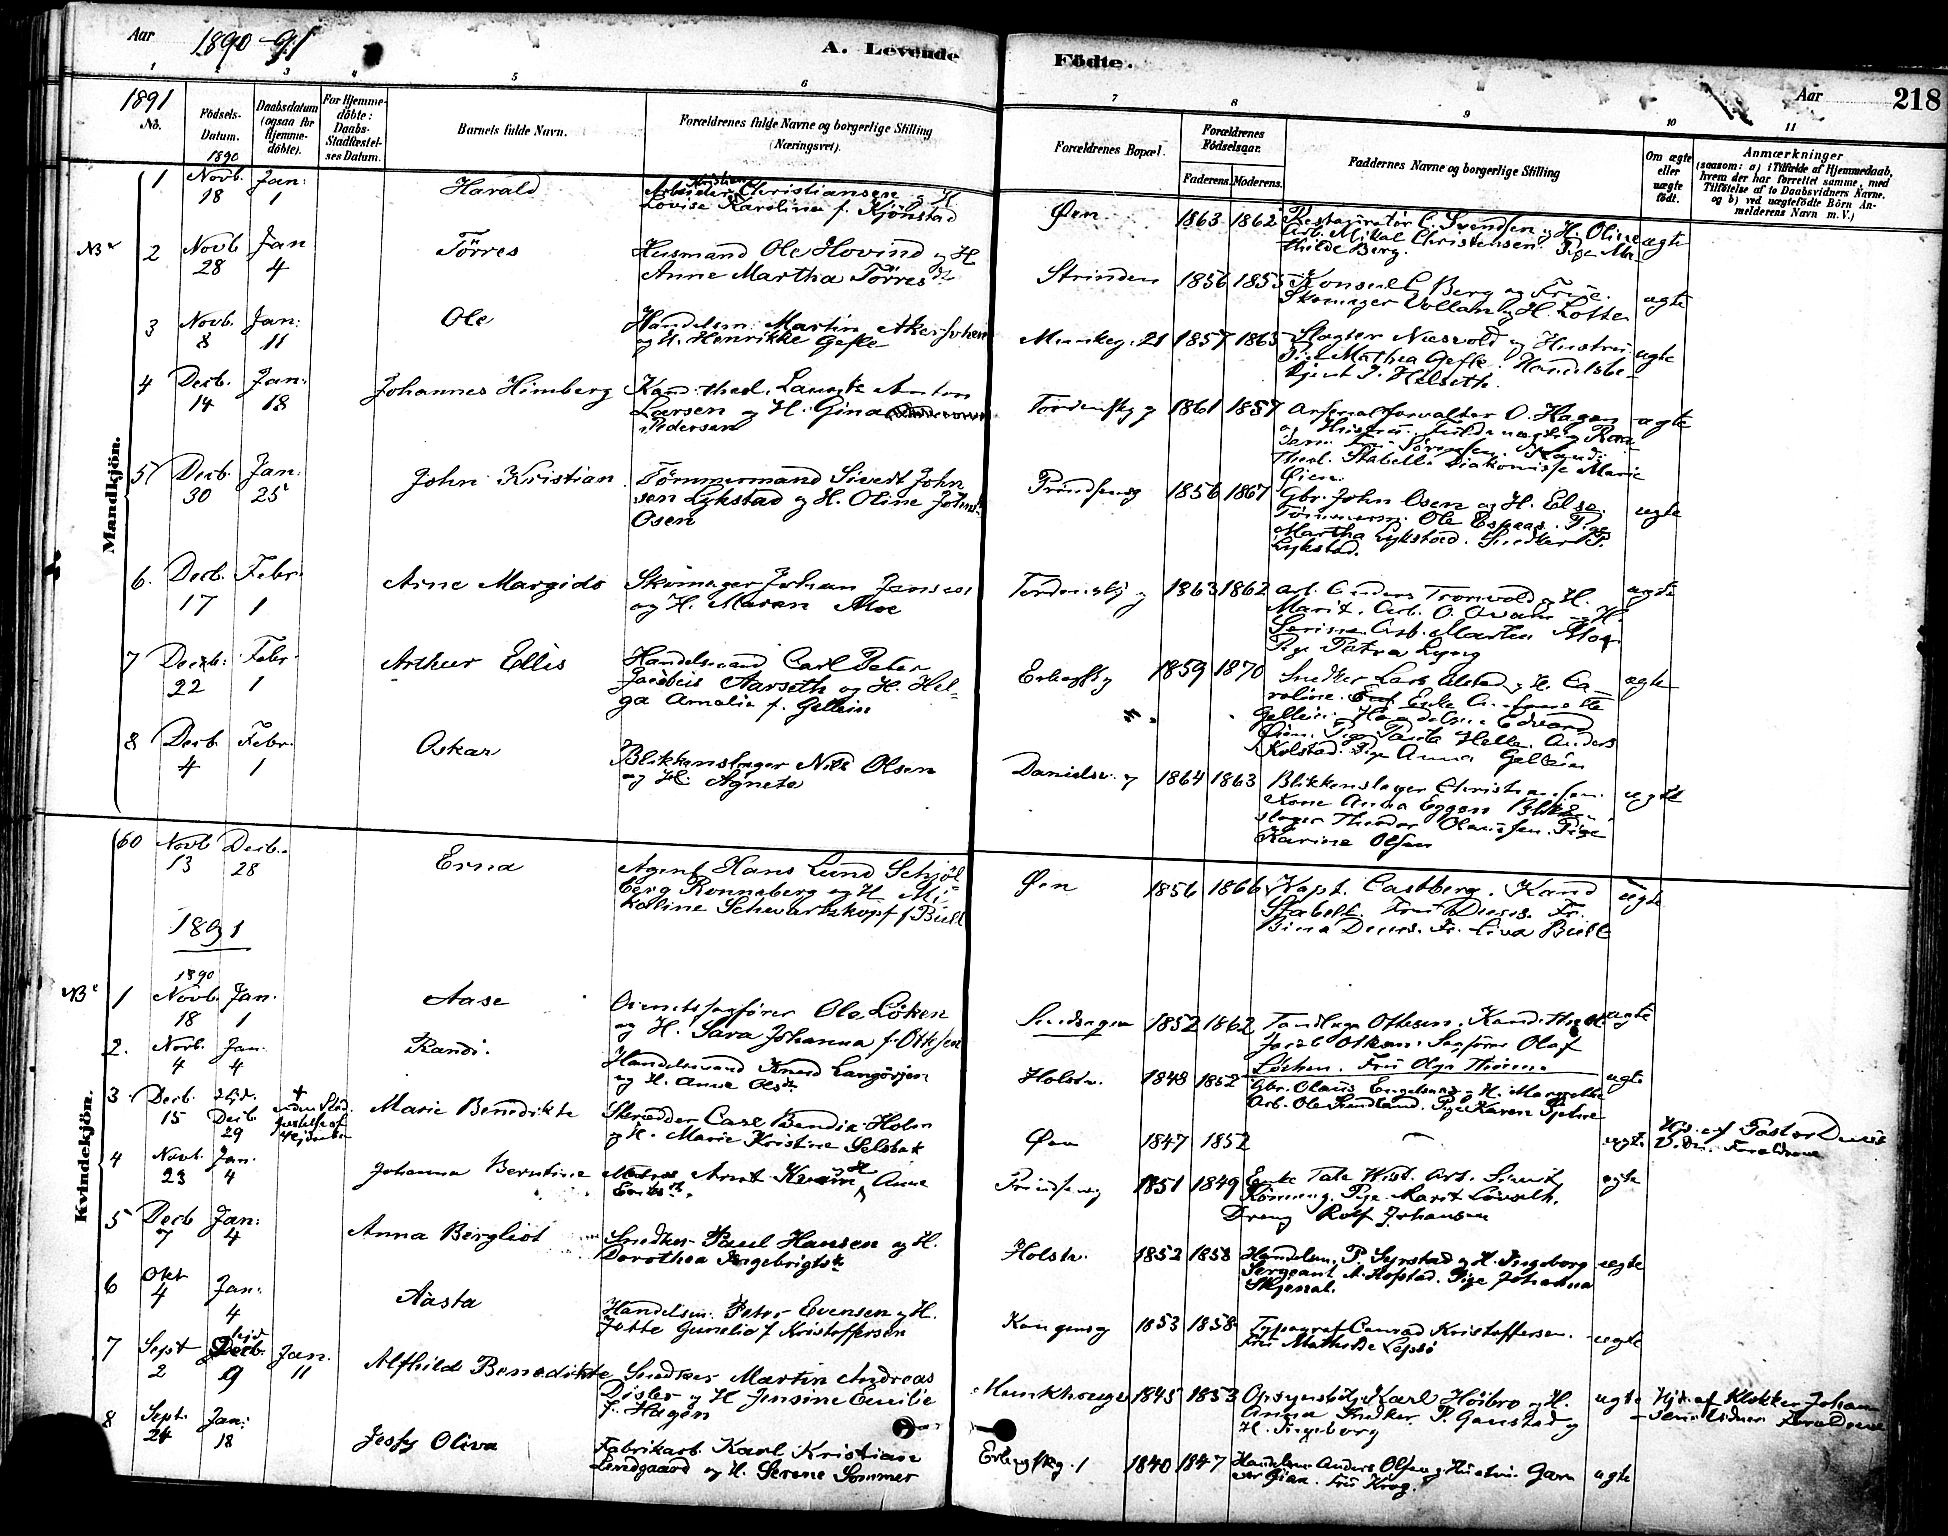 Aar 1890-91 A. Levende Födte. Aar 218
1 2 3 4 5 6 7 8 9 10 11
1891 No.
Födsels-Datum. 1890
Daabsdatum (ogsaa for Hjemme-döbte).
For Hjemme-döbte: Daabs-Stadfæstel-ses Datum.
Barnets fulde Navn.
Forældrenes fulde Navne og borgerlige Stilling (Næringsvei).
Forældrenes Bopæl.
Forældrenes Födselsaar. Faderens. Moderens.
Faddernes Navne og borgerlige Stilling
Om ægte eller uægte födt.
Anmærkninger (saasom: a) i Tilfælde af Hjemmedaab, hvem der har forrettet samme, med Tilföielse af to Daabsvidners Navne, og b) ved uægtefödte Börn An-melderens Navn m. V.)
Mandkjön.
1 Novb. 18 Jan: 1 Harald
Arbeider Kristian Christiansen og H.
Lovise Karoline f. Kjönstad
Øen 1863 1862
Restauratör C. Svendsen og H. Oline
Arb. Mikal Christensen. Pige Ma-
thilde Berg.
ægte
2 Novb 28 Jan 4 Törres
Husmand Ole Hovind og H
Anne Martha Törresdt
Strinden 1856 1855
Konsul C Berg og Frue.
Skomager Volland og H. Lotte
ægte
3 Novb. 8 Jan: 11 Ole
Handelsm. Martin
og H. Henrikke Gefle
Munkeg. 21 1857 1863
Slagter Næsvold og Hustru
Pige Mathea Gefle. Handelsbe-
tjent J. Halseth.
ægte
4 Decb. 14 Jan: 18 Johannes Himberg
Kand. theol. Lauritz Anton
Larsen og H. Gina
Pedersen
1861 1857
Arsenalforvalter O. Hagen
og Hustru.
Fru Sörensen. Kand:
Theol. Stabell. Diakonisse Marie
Öien.
ægte
5 Decb. 30 Jan: 25 John Kristian
Tömmermand Sivert John
sen Lykstad og H. Oline Johnsdt
Osen
Prindsensg 1856 1867
Gbr. John Osen og H. Else.
Tömmerm. Ole Espaas. Pige
Martha Lykstad. Snedker P.
Lykstad.
ægte
6. Decb. 17 Febr. 1 Arne Margido
Skomager Johan Jansen
og H. Maren Moe
Tordenskj g 1863 1862
Arb. Anders Tronvold og H.
Marit. Arb. O. Qvam og H.
Serine. Arb. Marten Moe
Pige Petra Lyng
ægte
7 Decb: 22 Febr 1 Arthur Ellis
Handelsmand Carl Peter
Jacobus Aarseth og H. Hel-
ga Amalie f. Gellein
1859 1870
Snedker Lars Ulstad og H. Ca-
roline. Enke
Gellein. Handelsm. Edvard
Öien. Pige Helle. Anders
Kolstad. Pige Anna Gellein
ægte
8 Decb 4 Febr. 1 Oskar
Blikkenslager Nils Olsen
og H. Agnete
Danielsv. 7 1864 1863
Blikkenslager Christiansen.
Kone Anna Eggen. Blikken
slager Theodor Olaussen. Pige
Karine Olsen
ægte
Kvindekjön.
60 Novb 13 Decb. 28 Erna
Agent Hans Lund Schjöl
berg Ronneberg og H. Mi-
kaline Schwartzkopf f Bull
Øen 1856 1866
Kapt. Castberg. Kand
Stabell. Fru Duus. Fr.
Bina Duus. Fr. Liva Bull
ægte
1891
1 1890 Novb. 18 Jan. 1 Aase
Ole Löken
og H. Sara Johanna f. Ottesen
1852 1862
Tandlæge Ottesen. Kand. theol
Jacob Ottesen. Sagförer Olaf
Löchen. Fru Olga
ægte
2. Novb. 4 Jan. 4 Randi.
Handelsmand
og H. Anne Olsdt
Holstv. 1848 1852
Gbr. Olaus Engelsaas og H. Margrethe
Arb. Ole Sundland. Pige Karen
ægte
3 Decb. 15 Hjd. Decb. 29 Marie Benedikte
Skrædder Carl Bendix Holm
og H. Marie Kristine Selsbak
Øen 1847 1852 —
ægte
Hjd. af Pastor Duus
Vidn. Forældrene
4 Novb. 23 Jan. 4 Johanna Berntine
Matros Arnt Kvam og H Anne
Prindsensg 1851 1849
Enke Tale Wist. Arb. Sivert
Römmen. Pige Marit Lövseth.
Dreng Rolf Johansen
ægte
5 Decb 7 Jan: 4 Anna Bergliot
Snedker Paul Hansen og H.
Dorothea Ingebrigtsdt
Holstv. 1852 1858
Handelsm. P. Sejrstad og H. Ingeborg
Sergeant M. Hofstad. Pige Johanna
ægte
6 Okt 4 Jan: 4 Aasta
Handelsm. Peter Evensen og H.
Jette Gunelia f Kristoffersen
Kongensg 1853 1858
Typograf Conrad Kristoffersen.
Fru Mathilde Lepsö
ægte
7 Sept 2 Hjd. Decb. 9 Jan. 11 Alfhild Benedikte
Snedker Martin Andreas
Disler og H Jensine Emilie
f. Hagen
Munkhaugv 1845 1853
Opsynsbetj. Karl Höibro og H.
Anna Snedker P. Ganstad og
H. Ingeborg
ægte
Hjd. af Klokker Johan
sen. Vidner Forældrene
8 Sept. 24 Jan: 18 Jessy Oliva
Fabrikarb Karl Kristian
Lundgaard og H. Serene Sommer
Erlingskg. 1 1840 1847
Handelsm. Anders Olsen og Hustru. Garv
Fru Krog.
ægte